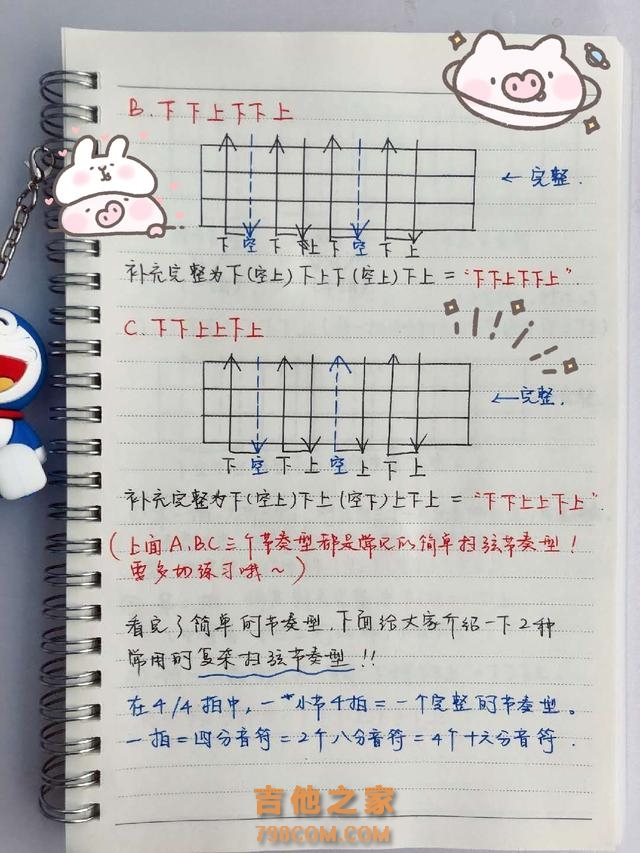 B. 下下上下下上
← 完整.
下 空 下 上 下 空 下 上
补充完整为下(空上)下上下(空上)下上 = “下下上下下上”.
C. 下下上上下上
← 完整.
下 空 下 上 空 上 下 上
补充完整为下(空上)下上(空下)上下上 = “下下上上下上”.
(上面A.B.C三个节奏型都是常见的简单扫弦节奏型!
要多切练习哦~)
看完了简单的节奏型,下面给大家介绍一下2种
常用的复杂扫弦节奏型!!
在4/4拍中,一个小节4拍=一个完整的节奏型。
一拍=四分音符=2个八分音符=4个十六分音符.
吉他之家
798COM.COM